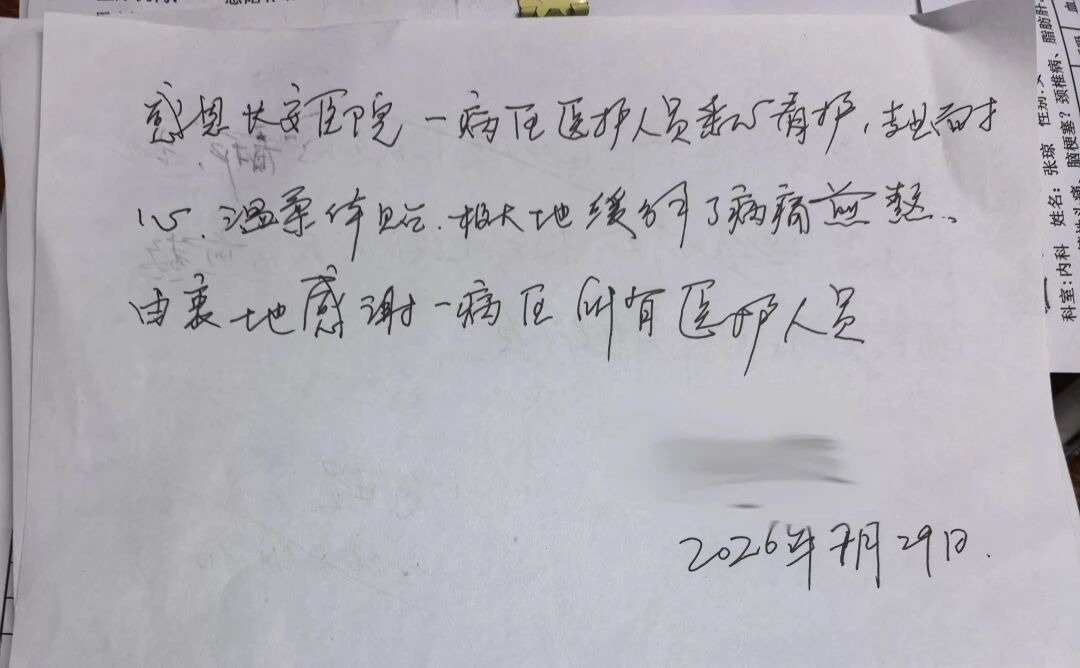 感恩长安医院一病区医护人员悉心看护,专业而才
心、温柔体贴、极大地缓解了病痛煎熬、
由衷地感谢一病区所有医护人员
2026年7月29日.
科室:内科 姓名:张琼 性别:女
脑梗塞?颈椎病、脂肪肝